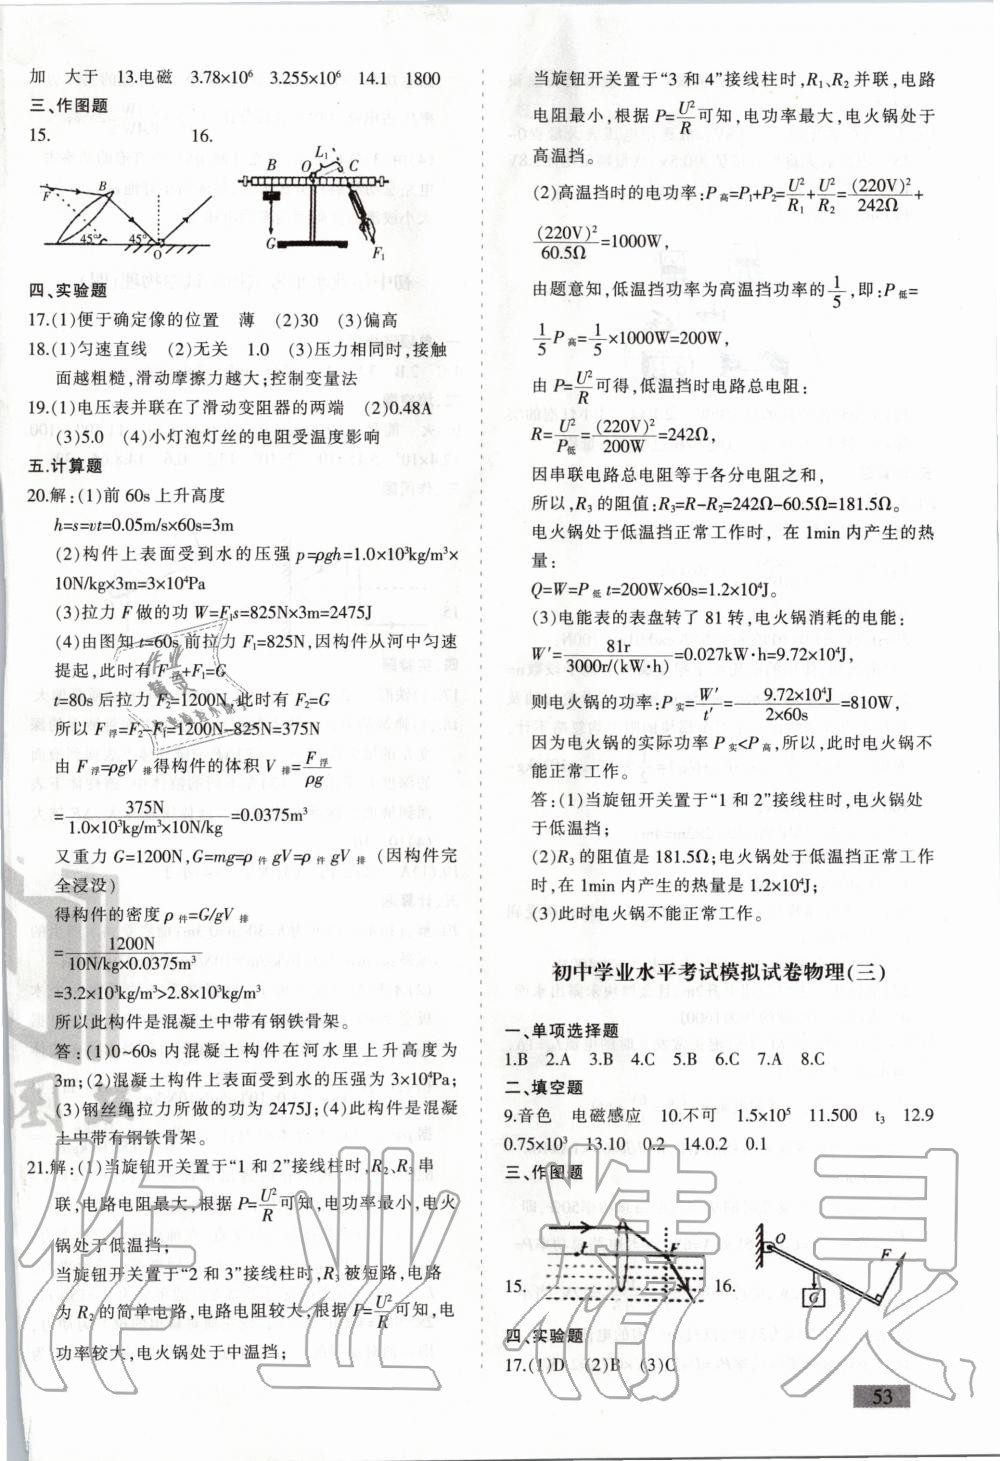 加 大于 13.电磁 3.78×10⁶ 3.255×10⁶ 14.1 1800
三、作图题
15. 16.
F B 45° 45° O
B L₁ O C G F₁
四、实验题
17.(1)便于确定像的位置 薄 (2)30 (3)偏高
18.(1)匀速直线 (2)无关 1.0 (3)压力相同时,接触
面越粗糙,滑动摩擦力越大;控制变量法
19.(1)电压表并联在了滑动变阻器的两端 (2)0.48A
(3)5.0 (4)小灯泡灯丝的电阻受温度影响
五、计算题
20.解:(1)前 60s 上升高度
h=s=vt=0.05m/s×60s=3m
(2)构件上表面受到水的压强 p=ρgh=1.0×10³kg/m³×
10N/kg×3m=3×10⁴Pa
(3)拉力 F 做的功 W=F₁s=825N×3m=2475J
(4)由图知 t=60s 前拉力 F₁=825N,因构件从河中匀速
提起,此时有 F浮+F₁=G
t=80s 后拉力 F₂=1200N,此时有 F₂=G
所以 F浮=F₂-F₁=1200N-825N=375N
由 F浮=ρgV排得构件的体积 V排=F浮/ρg
=375N/(1.0×10³kg/m³×10N/kg)=0.0375m³
又重力 G=1200N,G=mg=ρ件gV=ρ件gV排 (因构件完
全浸没)
得构件的密度 ρ件=G/gV排
=1200N/(10N/kg×0.0375m³)
=3.2×10³kg/m³>2.8×10³kg/m³
所以此构件是混凝土中带有钢铁骨架。
答:(1)0~60s 内混凝土构件在河水里上升高度为
3m;(2)混凝土构件上表面受到水的压强为 3×10⁴Pa;
(3)钢丝绳拉力所做的功为 2475J;(4)此构件是混凝
土中带有钢铁骨架。
21.解:(1)当旋钮开关置于“1 和 2”接线柱时,R₂、R₃ 串
联,电路电阻最大,根据 P=U²/R可知,电功率最小,电火
锅处于低温挡;
当旋钮开关置于“2 和 3”接线柱时,R₃ 被短路,电路
为 R₂ 的简单电路,电路电阻较大,根据 P=U²/R可知,电
功率较大,电火锅处于中温挡;
当旋钮开关置于“3 和 4”接线柱时,R₁、R₂ 并联,电路
电阻最小,根据 P=U²/R可知,电功率最大,电火锅处于
高温挡。
(2)高温挡时的电功率:P高=P₁+P₂=U²/R₁+U²/R₂=(220V)²/242Ω+
(220V)²/60.5Ω=1000W,
由题意知,低温挡功率为高温挡功率的1/5,即:P低=
1/5P高=1/5×1000W=200W,
由 P=U²/R可得,低温挡时电路总电阻:
R=U²/P低=(220V)²/200W=242Ω,
因串联电路总电阻等于各分电阻之和,
所以,R₃ 的阻值:R₃=R-R₂=242Ω-60.5Ω=181.5Ω。
电火锅处于低温挡正常工作时, 在 1min 内产生的热
量:
Q=W=P低t=200W×60s=1.2×10⁴J。
(3)电能表的表盘转了 81 转,电火锅消耗的电能:
W′=81r/3000r/(kW·h)=0.027kW·h=9.72×10⁴J,
则电火锅的功率:P实=W′/t′=9.72×10⁴J/2×60s=810W,
因为电火锅的实际功率 P实<P高,所以,此时电火锅不
能正常工作。
答:(1)当旋钮开关置于“1 和 2”接线柱时,电火锅处
于低温挡;
(2)R₃ 的阻值是 181.5Ω;电火锅处于低温挡正常工作
时,在 1min 内产生的热量是 1.2×10⁴J;
(3)此时电火锅不能正常工作。
初中学业水平考试模拟试卷物理(三)
一、单项选择题
1.B 2.A 3.B 4.C 5.B 6.C 7.A 8.C
二、填空题
9.音色 电磁感应 10.不可 1.5×10⁵ 11.500 t₃ 12.9
0.75×10³ 13.10 0.2 14.0.2 0.1
三、作图题
15. F 16. O F G
四、实验题
17.(1)D (2)B (3)C
53
作业精灵